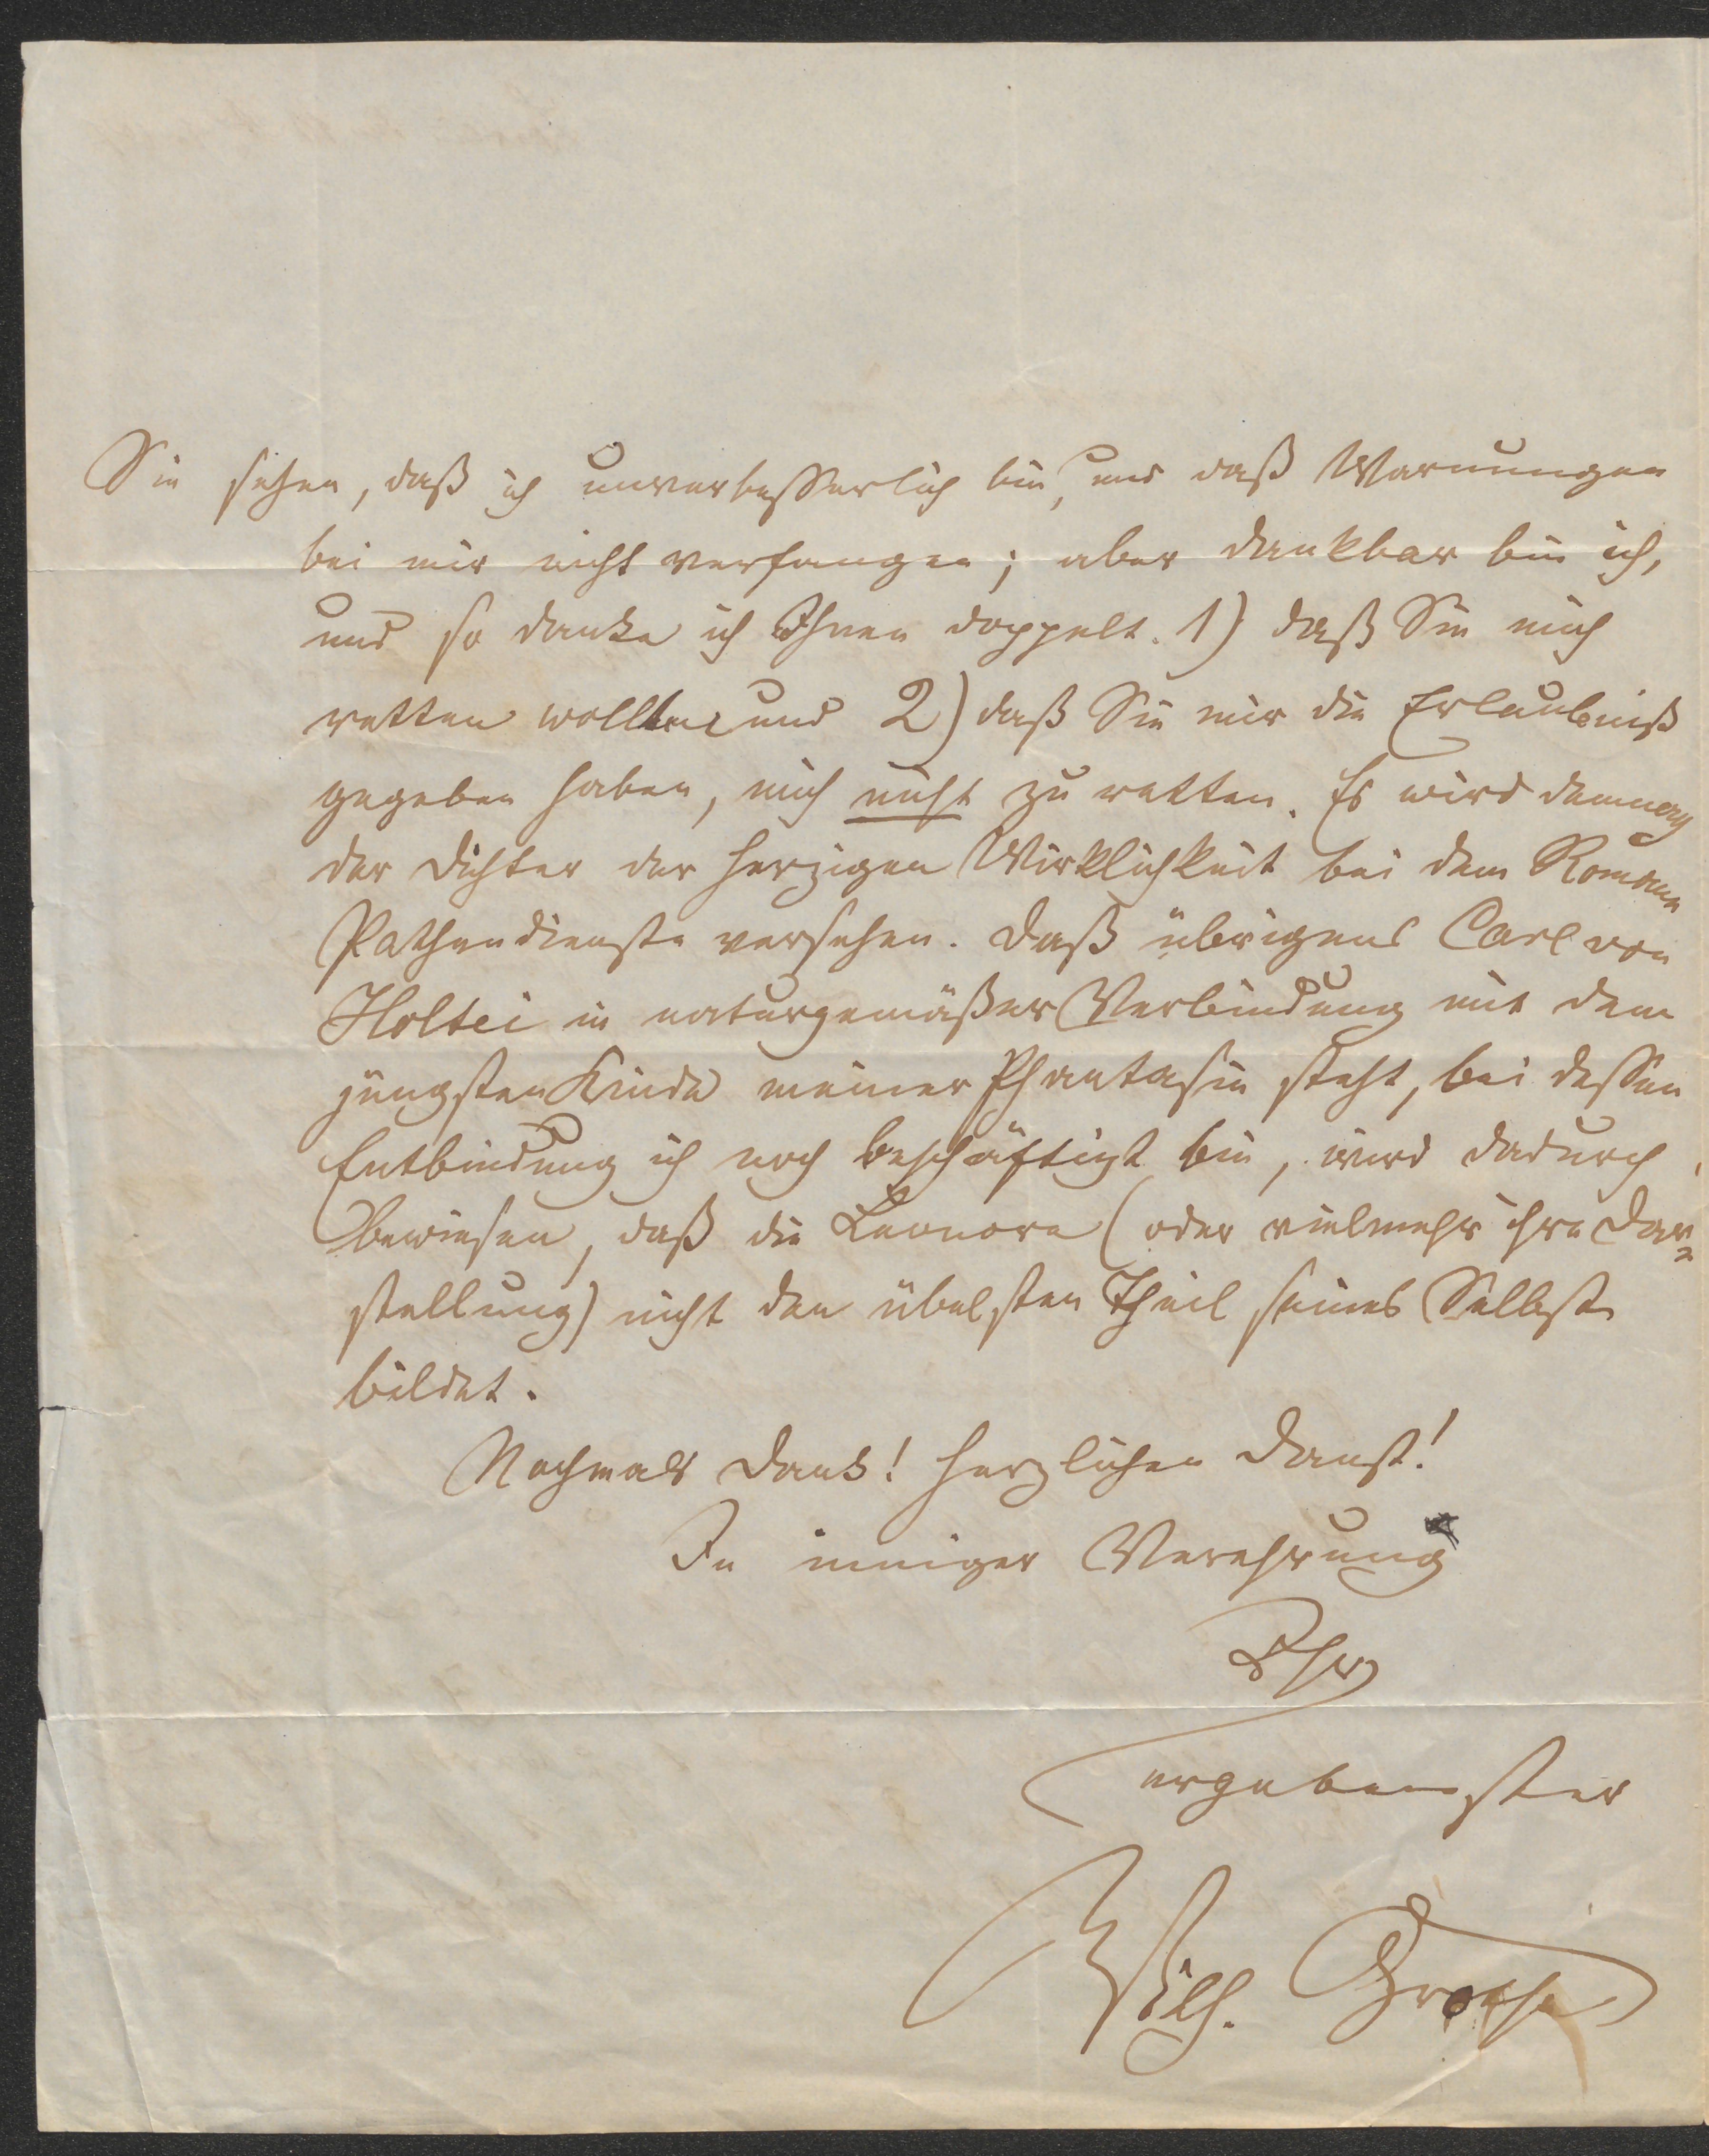 Sie sehen, daß ich unverbesserlich bin, und daß Warnungen
bei mir nicht verfangen; aber dankbar bin ich,
und so danke ich Ihnen doppelt. 1) daß Sie mich
retten wollten und 2) daß Sie mir die Erlaubniß
gegeben haben, mich nicht zu retten. Es wird demnach
der Dichter der herzigen Wirklichkeit bei dem Romane
Pathendienste versehen. Daß übrigens Carl von
Holtei in naturgemäßer Verbindung mit dem
jüngsten Kinde meiner Phantasie steht, bei dessen
Entbindung ich noch beschäftigt bin, wird dadurch
bewiesen, daß die Leonore (oder vielmehr ihre Dar=
stellung) nicht den übelsten Theil seines Selbst
bildet.
Nochmals Dank! herzlichen Dank!
In inniger Verehrung
Ihr
ergebenster
Wilh. Grothe